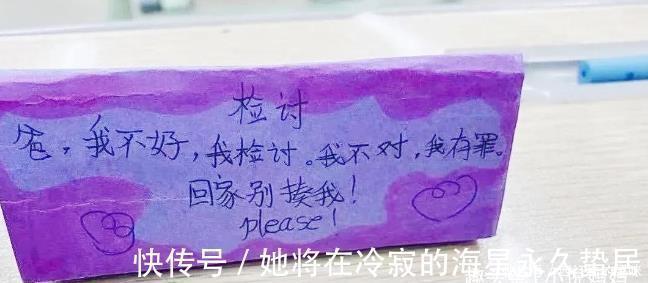 检讨
爸，我不好，我检讨。我不对，我有罪。
回家别揍我！
please！
快传号／她将在冷寂的海星永久垫居